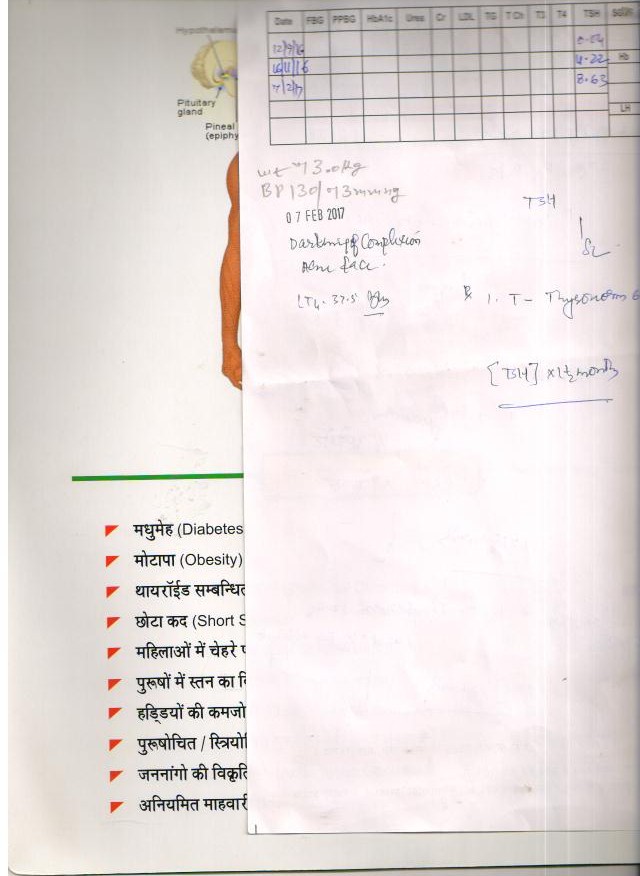 Hypothalamu
Pituitary
gland
Pineal
(epiphy
Date FBG PPBG HbA1c Urea Cr LDL TG T Ch T3 T4 TSH
12/9/16 0.04
16/11/16 4.22 Hb
7/2/17 8.63
LH
wt 73.0kg
BP 130/73mmHg
07 FEB 2017
TSH
Darkening of Complexion
Acne face.
LT4 - 37.5
1. T - Thyronorm 6
[TSH] x 1½ months
मधुमेह (Diabetes
मोटापा (Obesity)
थायरॉईड सम्बन्धित
छोटा कद (Short S
महिलाओं में चेहरे प
पुरूषों में स्तन का वि
हड्डियों की कमजो
पुरूषोचित / स्त्रियो
जननांगो की विकृति
अनियमित माहवारी